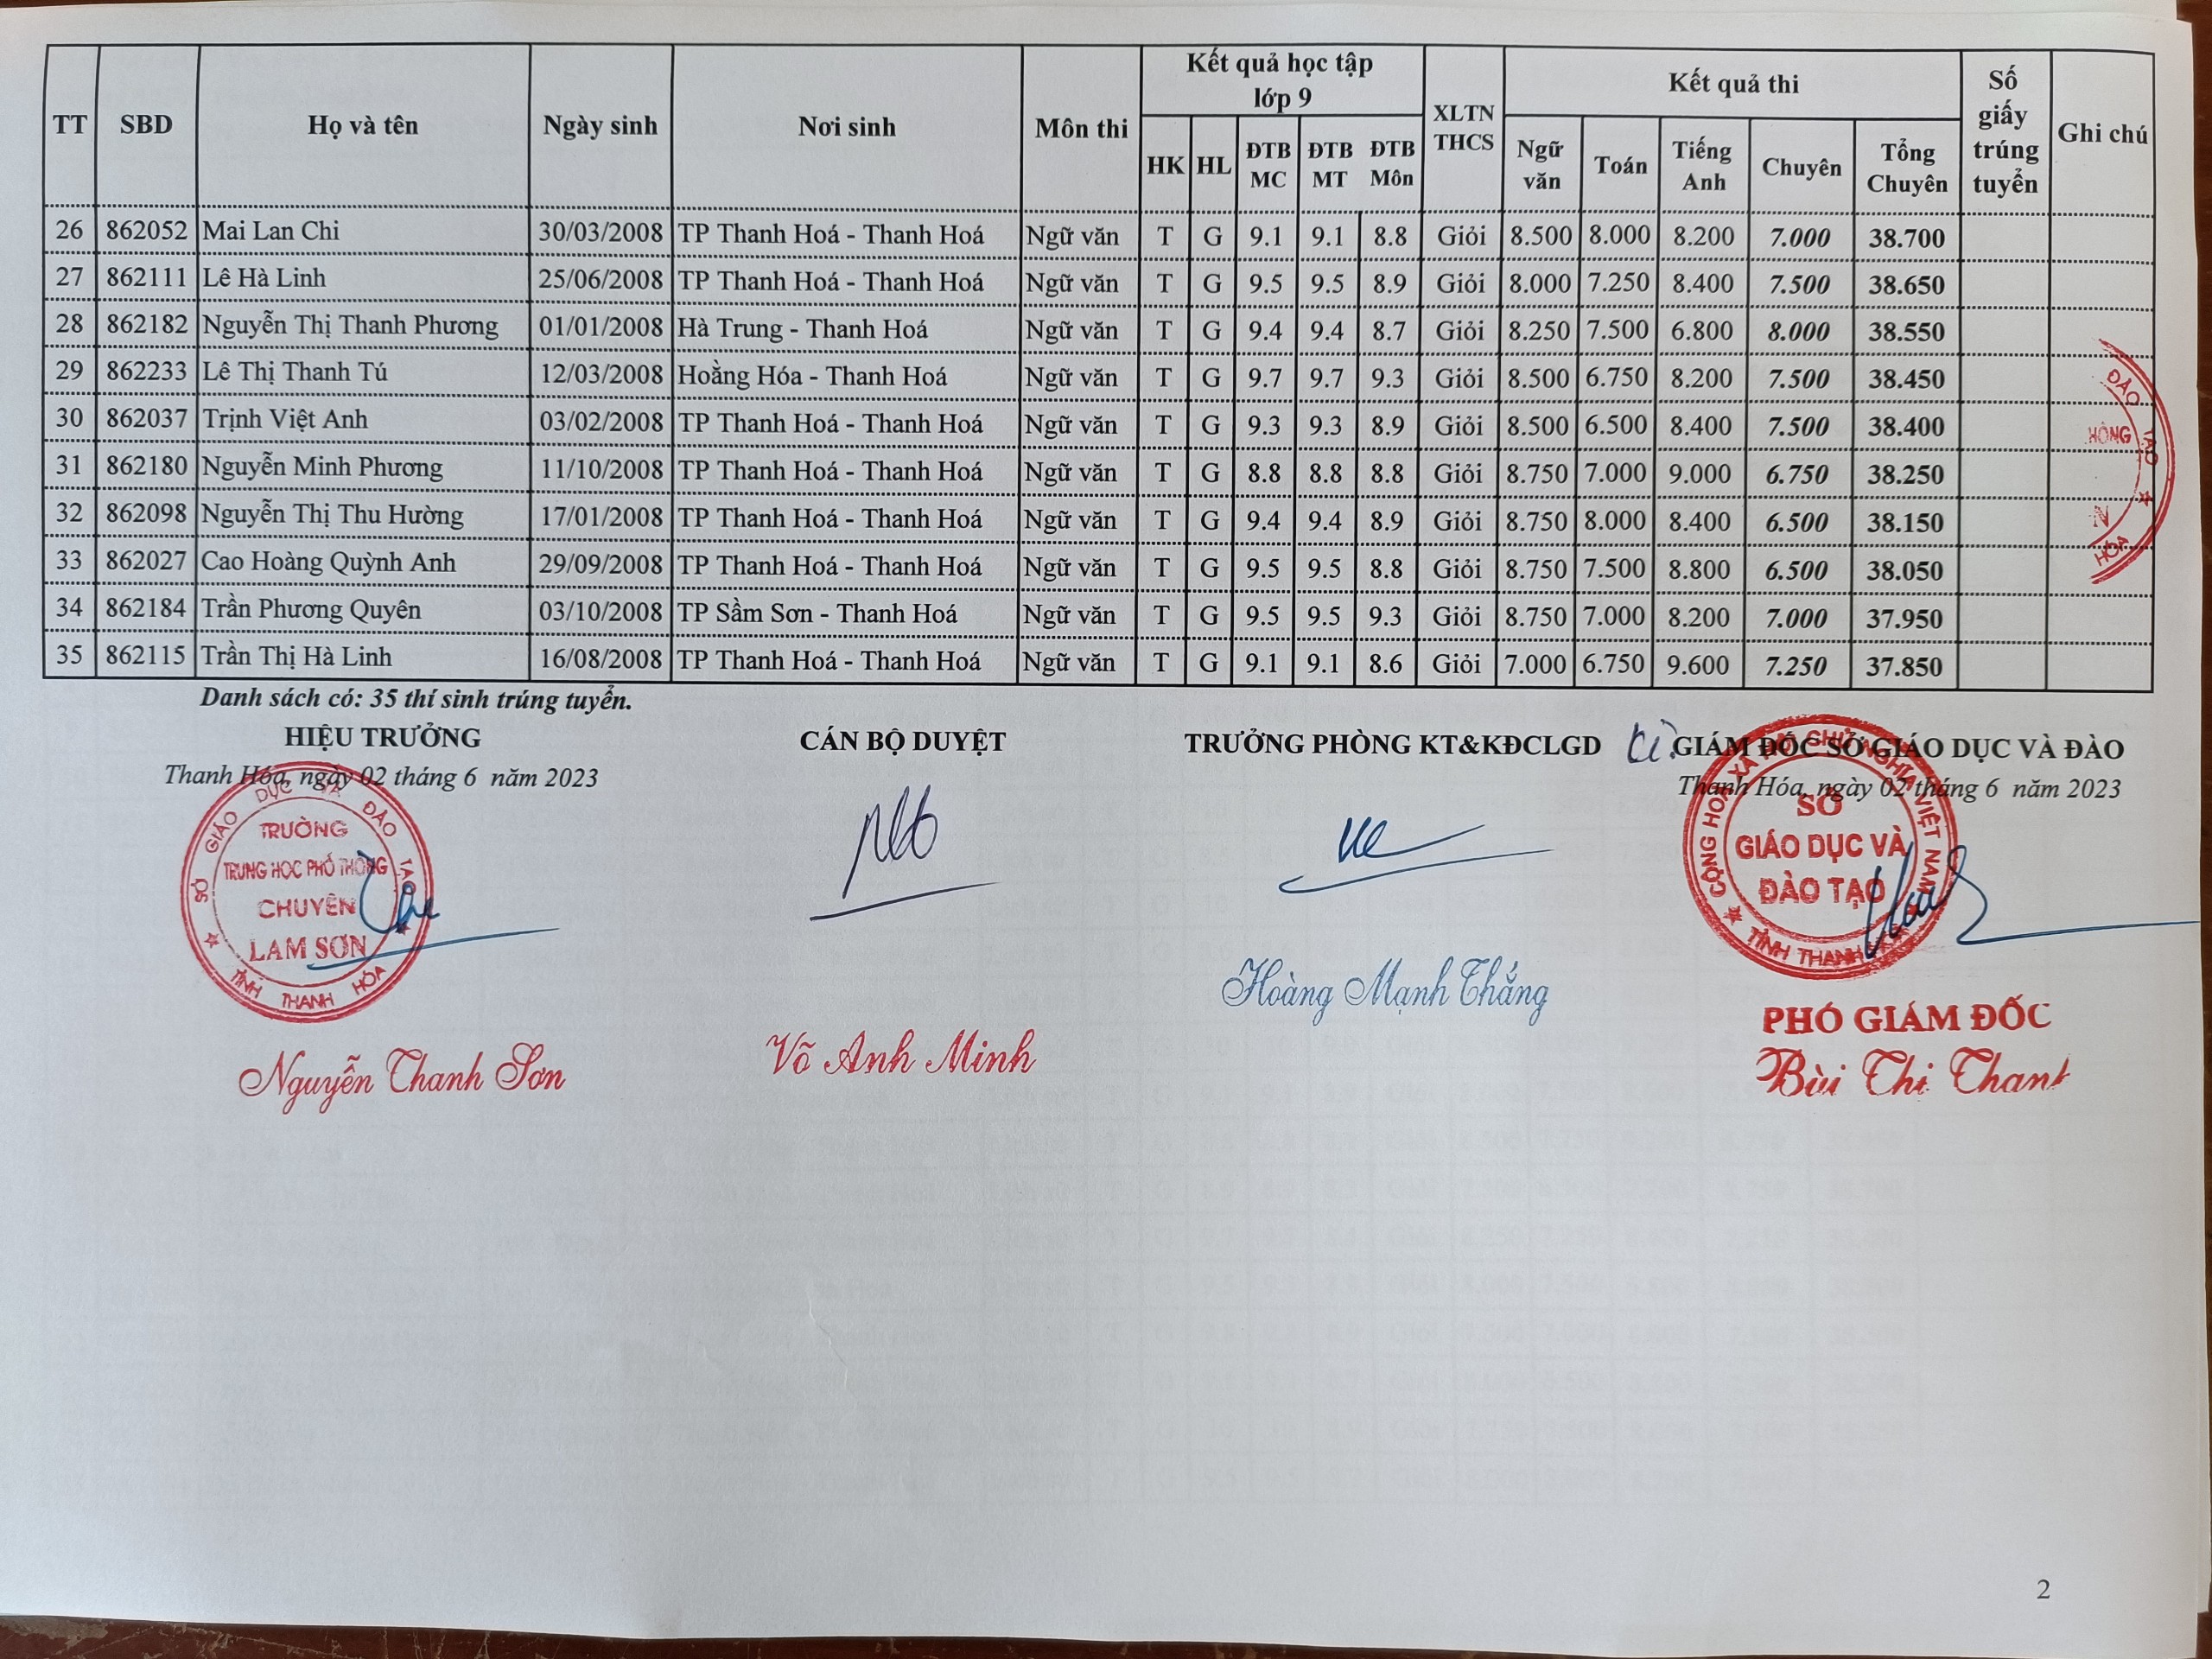 TT SBD Họ và tên Ngày sinh Nơi sinh Môn thi Kết quả học tập lớp 9 XLTN THCS Kết quả thi Số giấy trúng tuyển Ghi chú
HK HL ĐTB MC ĐTB MT ĐTB Môn Ngữ văn Toán Tiếng Anh Chuyên Tổng Chuyên
26 862052 Mai Lan Chi 30/03/2008 TP Thanh Hoá - Thanh Hoá Ngữ văn T G 9.1 9.1 8.8 Giỏi 8.500 8.000 8.200 7.000 38.700
27 862111 Lê Hà Linh 25/06/2008 TP Thanh Hoá - Thanh Hoá Ngữ văn T G 9.5 9.5 8.9 Giỏi 8.000 7.250 8.400 7.500 38.650
28 862182 Nguyễn Thị Thanh Phương 01/01/2008 Hà Trung - Thanh Hoá Ngữ văn T G 9.4 9.4 8.7 Giỏi 8.250 7.500 6.800 8.000 38.550
29 862233 Lê Thị Thanh Tú 12/03/2008 Hoằng Hóa - Thanh Hoá Ngữ văn T G 9.7 9.7 9.3 Giỏi 8.500 6.750 8.200 7.500 38.450
30 862037 Trịnh Việt Anh 03/02/2008 TP Thanh Hoá - Thanh Hoá Ngữ văn T G 9.3 9.3 8.9 Giỏi 8.500 6.500 8.400 7.500 38.400
31 862180 Nguyễn Minh Phương 11/10/2008 TP Thanh Hoá - Thanh Hoá Ngữ văn T G 8.8 8.8 8.8 Giỏi 8.750 7.000 9.000 6.750 38.250
32 862098 Nguyễn Thị Thu Hường 17/01/2008 TP Thanh Hoá - Thanh Hoá Ngữ văn T G 9.4 9.4 8.9 Giỏi 8.750 8.000 8.400 6.500 38.150
33 862027 Cao Hoàng Quỳnh Anh 29/09/2008 TP Thanh Hoá - Thanh Hoá Ngữ văn T G 9.5 9.5 8.8 Giỏi 8.750 7.500 8.800 6.500 38.050
34 862184 Trần Phương Quyên 03/10/2008 TP Sầm Sơn - Thanh Hoá Ngữ văn T G 9.5 9.5 9.3 Giỏi 8.750 7.000 8.200 7.000 37.950
35 862115 Trần Thị Hà Linh 16/08/2008 TP Thanh Hoá - Thanh Hoá Ngữ văn T G 9.1 9.1 8.6 Giỏi 7.000 6.750 9.600 7.250 37.850
ĐÀO TẠO
HÔNG
N
HÓA
Danh sách có: 35 thí sinh trúng tuyển.
HIỆU TRƯỞNG CÁN BỘ DUYỆT TRƯỞNG PHÒNG KT&KĐCLGD GIÁM ĐỐC SỞ GIÁO DỤC VÀ ĐÀO
Thanh Hóa, ngày 02 tháng 6 năm 2023 Thanh Hóa, ngày 02 tháng 6 năm 2023
SỞ GIÁO DỤC VÀ ĐÀO TẠO
TRƯỜNG
TRUNG HỌC PHỔ THÔNG
CHUYÊN
LAM SƠN
TỈNH THANH HÓA
CỘNG HOÀ XÃ HỘI CHỦ NGHĨA VIỆT NAM
SỞ
GIÁO DỤC VÀ
ĐÀO TẠO
TỈNH THANH HÓA
Hoàng Mạnh Thắng
PHÓ GIÁM ĐỐC
Nguyễn Thanh Sơn Võ Anh Minh Bùi Thị Thanh
2